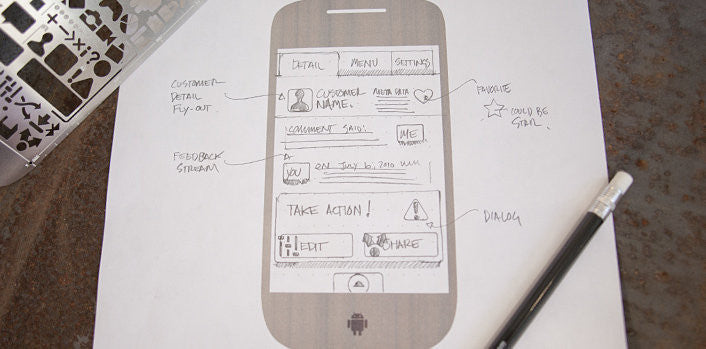 DETAIL MENU SETTINGS
CUSTOMER
DETAIL
FLY-OUT
CUSTOMER
NAME.
META DATA
FAVORITE
COULD BE
STAR.
COMMENT SAID:
ME
FEEDBACK
STREAM
YOU
ON JULY 10, 2010
TAKE ACTION!
DIALOG
EDIT SHARE